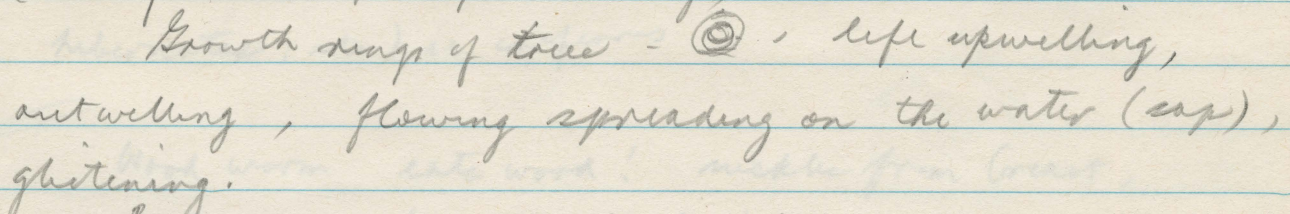 Growth rings of tree - , life upwelling,
outwelling, flowing spreading on the water (sap),
glistening.